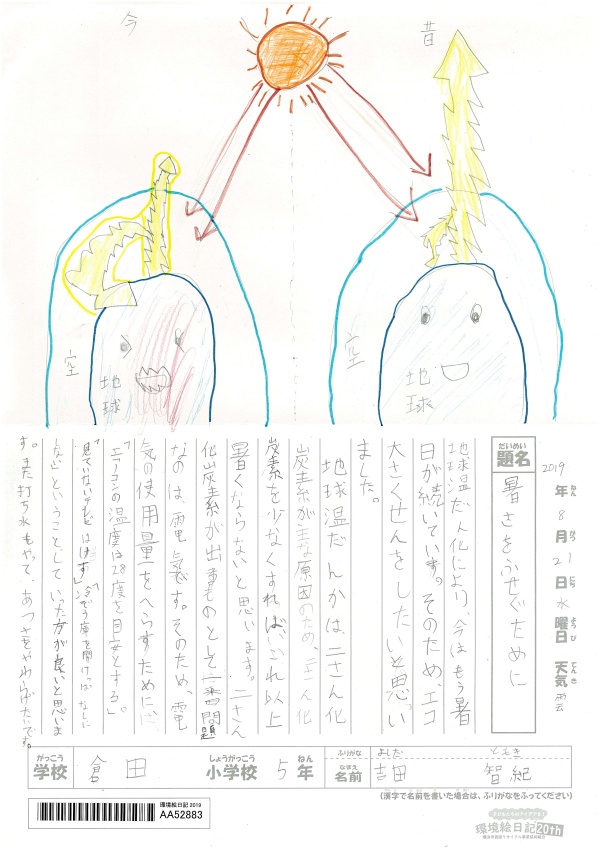 今
昔
空
地球
空
地球
2019年8月21日水曜日 天気 雲
題名 暑さをふせぐために
地球温だん化により、今はもう暑い
日が続いています。そのため、エコ
大さくせんをしたいと思い
ました。
地球温だんかは、二さん化
炭素が主な原因のため、二さん化
炭素を少なくすれば、これ以上
暑くならないと思います。二さん
化炭素が出るものとして一番問題
なのは、電気です。そのため、電
気の使用量をへらすためには、
「エアコンの温度は28度を目安とする。」
「見ていないテレビはけす」「冷ぞう庫を開けっぱなしに
しない」ということをしていった方が良いと思いま
す。また打ち水もやって、あつさをやわらげたいです。
がっこう 学校 倉田 しょうがっこう 小学校 5 ねん 年
ふりがな よしだ ともき
なまえ 名前 吉田 智紀
(漢字で名前を書いた場合は、ふりがなをふってください)
環境絵日記 2019
AA52883
環境絵日記20th